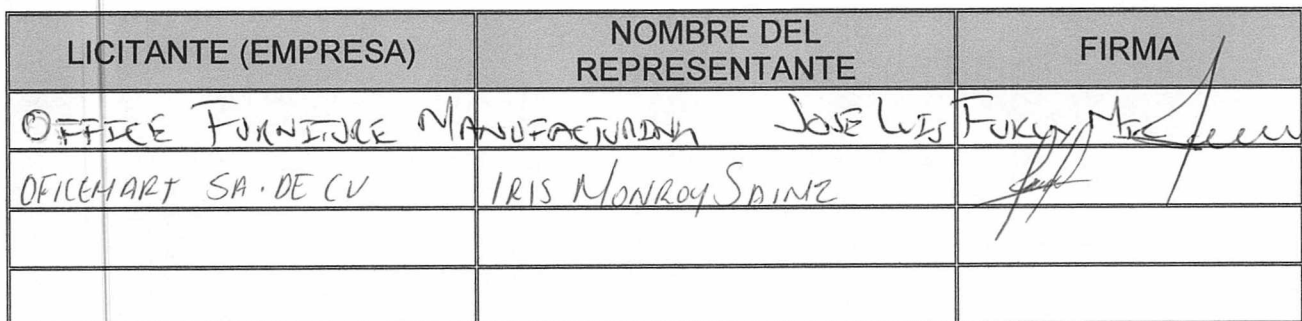 LICITANTE (EMPRESA) NOMBRE DEL REPRESENTANTE FIRMA
OFFICE FURNITURE MANUFACTURING JOSE LUIS
OFICEMART SA. DE CV IRIS MONROY SAINZ